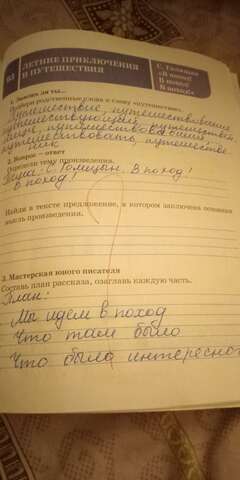 63
ЛЕТНИЕ ПРИКЛЮЧЕНИЯ
И ПУТЕШЕСТВИЯ
С. Голицын
«В поход!
В поход!
В поход!»
1. Знаешь ли ты...
Подбери родственные слова к слову «путешествие».
Путешествие, путешествование
путешествующий, путешествен
путешествовать, путешествен
ник
2. Вопрос – ответ
Определи тему произведения.
С. Голицын. В поход!
В поход!
Найди в тексте предложение, в котором заключена основная
мысль произведения.
3. Мастерская юного писателя
Составь план рассказа, озаглавь каждую часть.
План:
Мы идем в поход
Что там было
Что было интересно